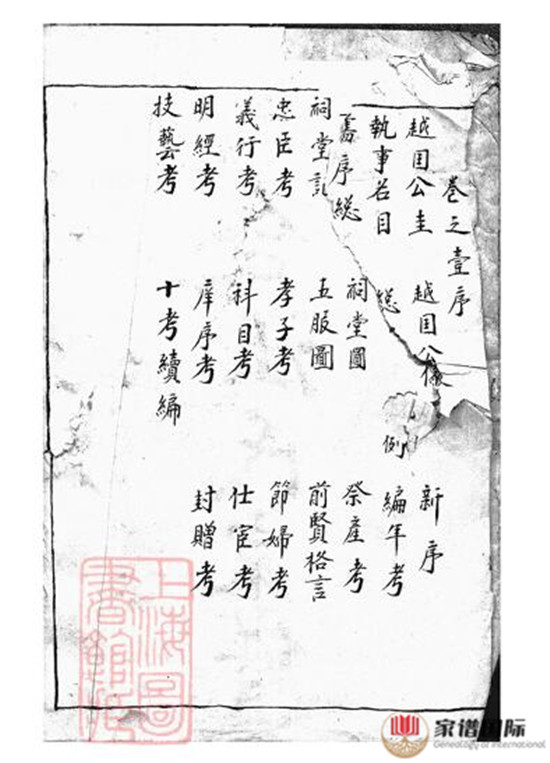 巻之壹序
越囯公圭 越囯公像 新序
執事名目 總 例 編年考
舊序總 祠堂圖 祭產考
祠堂記 五服圖 前賢格言
忠臣考 孝子考 節婦考
義行考 科目考 仕宦考
明經考 庠序考 封贈考
技藝考 十考續編
上海圖書館藏
家谱国际
Genealogy of International